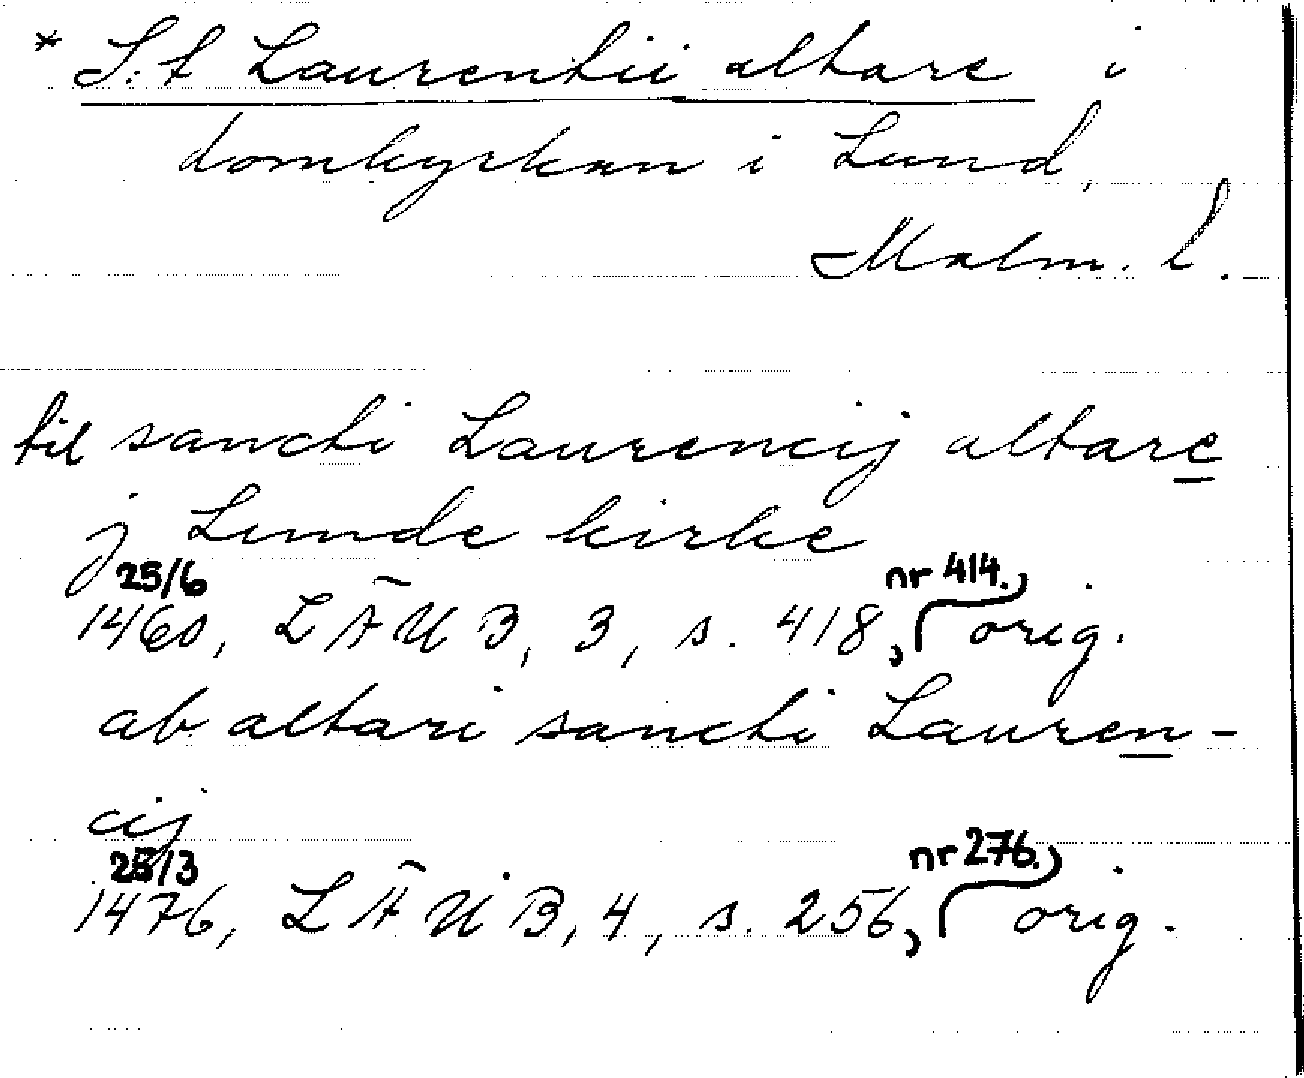 * S:t Laurentii altare i
domkyrkan i Lund,
Malm. l.
til sancti Laurencij altare
j Lunde kirke
25/6 nr 414.,
1460, LÄUB, 3, s. 418, orig.
ab altari sancti Lauren-
cij
25/3 nr 276.,
1476, LÄUB, 4, s. 256, orig.